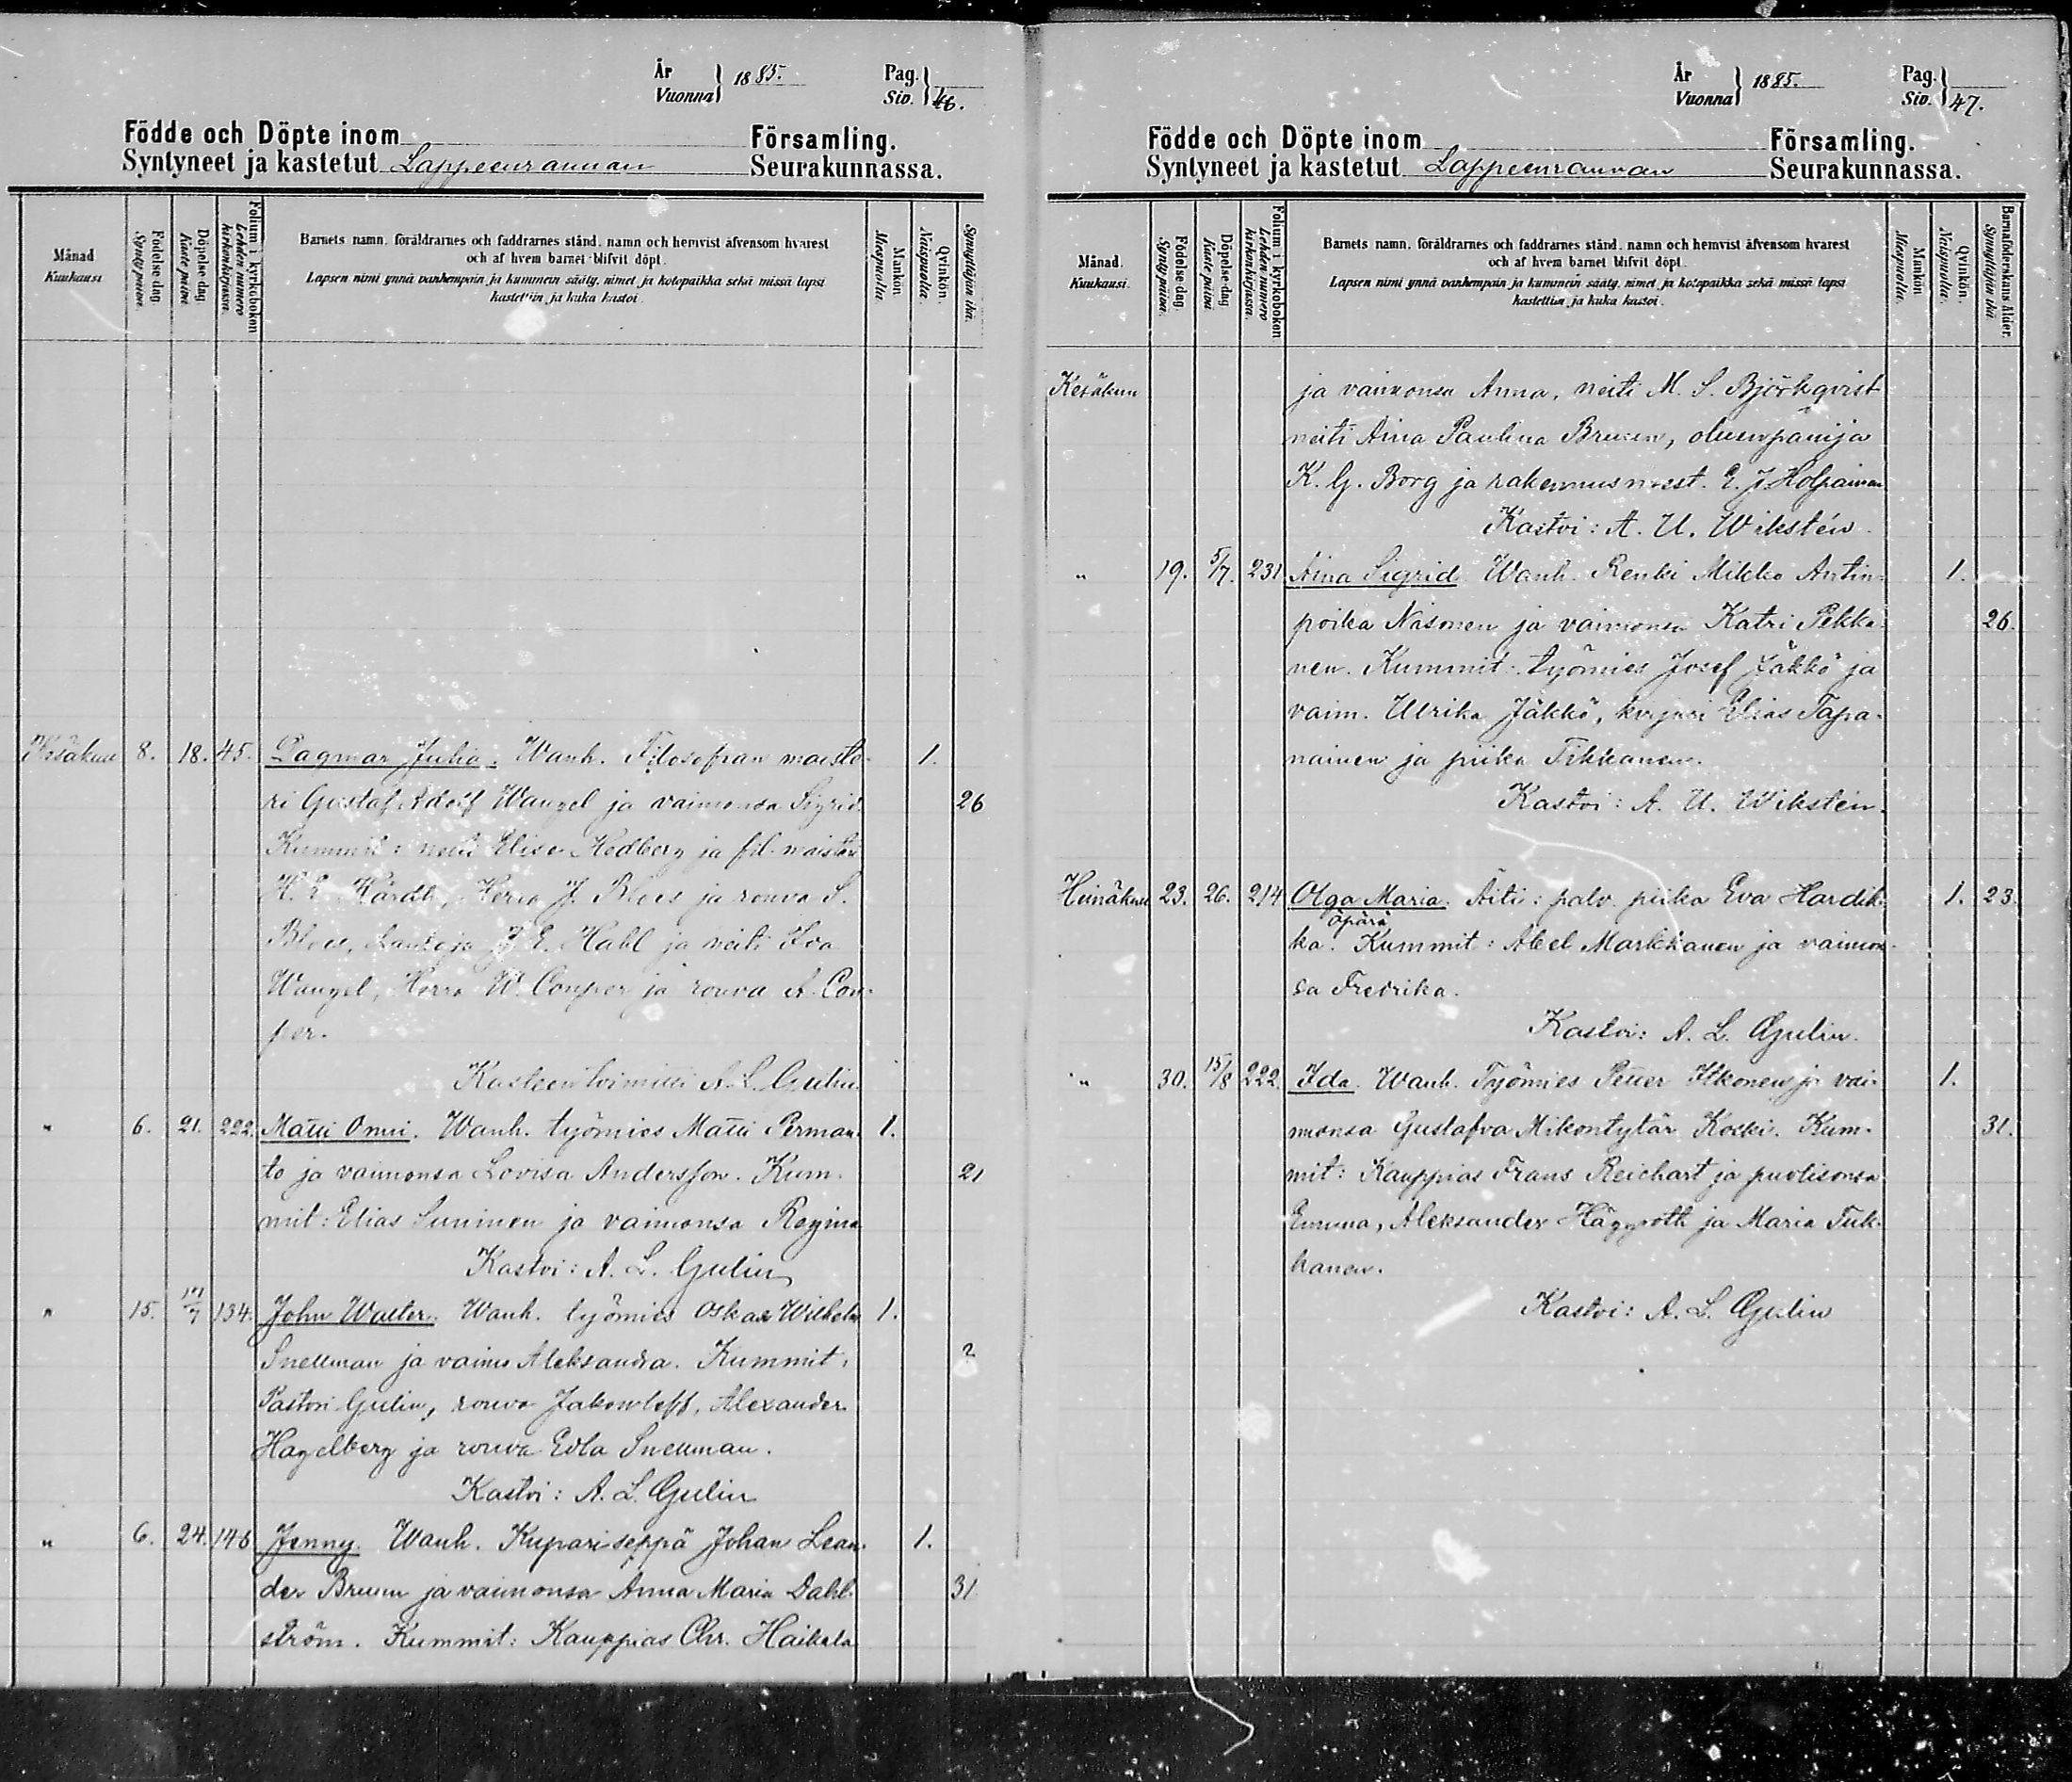 År
Vuonna } 1885.
Pag.
Siv. } 46.
Födde och Döpte inom Församling.
Syntyneet ja kastetut Lappeenrannan Seurakunnassa.
Månad.
Kuukausi.
Födelse-dag.
Syntypäivä.
Döpelse-dag.
Kaste päivä.
Folium i kyrkobokon
Lehden numero
kirkonkirjassa.
Barnets namn, föräldrarnes och faddrarnes stånd, namn och hemvist äfvensom hvarest
och af hvem barnet blifvit döpt.
Lapsen nimi ynnä vanhempain ja kummein sääty, nimet ja kotopaikka sekä missä lapsi
kastettiin ja kuka kastoi.
Mankön.
Miespuolia.
Qvinkön.
Naispuolia.
Synnyttäjän ikä.
Kesäkuu 8. 18. 45. Dagmar Julia. Wanh. Filosofian maiste- 1.
ri Gustaf Adolf Wangel ja vaimonsa Sigrid. 26
Kummit: neiti Elise Hedberg ja fil. maisteri
H. E. Kårdh, Herra J. ja rouva S.
J. E. Hahl ja neiti
Wangel, Herra W. Conper ja rouva A. Con-
per.
Kasteen toimitti A. L. Gulin.
" 6. 21. 222. Matti Onni. Wanh. työmies Matti Perman- 1.
to ja vaimonsa Lovisa Andersson. Kum- 21
mit: Elias Suninen ja vaimonsa Regina
Kastoi: A. L. Gulin
" 15. /7 134. John Walter. Wanh. työmies Oskar Wilhelm 1.
Snellman ja vaimo Aleksandra. Kummit: ?
Pastori Gulin, rouva Jakowleff, Alexander
Hagelberg ja rouva Edla Snellman.
Kastoi: A. L. Gulin
" 6. 24. 146 Jenny. Wanh. Kupariseppä Johan Lean- 1.
der Bruun ja vaimonsa Anna Maria Dahl- 31
ström. Kummit: Kauppias Chr. Haikala
År
Vuonna } 1885.
Pag.
Siv. } 47.
Födde och Döpte inom Församling.
Syntyneet ja kastetut Lappeenrannan Seurakunnassa.
Månad.
Kuukausi.
Födelse-dag.
Syntypäivä.
Döpelse-dag.
Kaste päivä.
Folium i kyrkobokon
Lehden numero
kirkonkirjassa.
Barnets namn, föräldrarnes och faddrarnes stånd, namn och hemvist äfvensom hvarest
och af hvem barnet blifvit döpt.
Lapsen nimi ynnä vanhempain ja kummein sääty, nimet ja kotopaikka sekä missä lapsi
kastettiin ja kuka kastoi.
Mankön.
Miespuolia.
Qvinkön.
Naispuolia.
Barnaföderskans ålder.
Synnyttäjän ikä.
Kesäkuu ja vaimonsa Anna, neiti M. S. Björkqvist
neiti Aina Paulina Bruun, oluenpanija
K. G. Borg ja rakennusmest. E. J. Holpainen
Kastoi: A. U. Wikstén.
" 19. 5/7. 231 Aina Sigrid. Wanh. Renki Mikko Antin- 1.
poika Näsonen ja vaimonsa Katri Pekka- 26.
nen. Kummit: työmies Josef Jäkkö ja
vaim. Ulrika Jäkkö, kirjuri Elias Tapa-
nainen ja piika Tikkanen.
Kastoi: A. U. Wikstén.
Heinäkuu 23. 26. 214 Olga Maria. Äiti: palv. piika Eva Hardik- 1. 23.
äpärä
ka. Kummit: Abel Markkanen ja vaimon-
sa Fredrika.
Kastoi: A. L. Gulin.
" 30. 15/8 222. Ida. Wanh. Työmies Petter Itkonen ja vai- 1.
monsa Gustafva Mikontytär Koski. Kum- 31.
mit: Kauppias Frans Reichart ja puolisonsa
Emma, Aleksander Häggroth ja Maria Tuk-
kanen.
Kastoi: A. L. Gulin